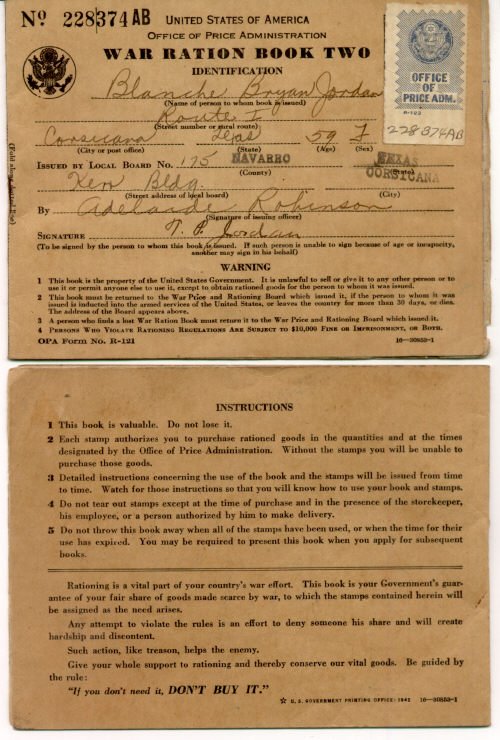 Nº 228374 AB UNITED STATES OF AMERICA
OFFICE OF PRICE ADMINISTRATION
WAR RATION BOOK TWO
IDENTIFICATION
OFFICE
OF
PRICE ADM.
R-123
228374AB
Blanche Bryan Jordan
(Name of person to whom book is issued)
Route 1
(Street number or rural route)
Corsicana Texas 59 F
(City or post office) (State) (Age) (Sex)
ISSUED BY LOCAL BOARD NO. 175 NAVARRO TEXAS
(County) (State)
CORSICANA
Kerr Bldg.
(Street address of local board) (City)
By Adelaide Robinson
(Signature of issuing officer)
SIGNATURE T. P. Jordan
(To be signed by the person to whom this book is issued. If such person is unable to sign because of age or incapacity,
another may sign in his behalf)
WARNING
1 This book is the property of the United States Government. It is unlawful to sell or give it to any other person or to
use it or permit anyone else to use it, except to obtain rationed goods for the person to whom it was issued.
2 This book must be returned to the War Price and Rationing Board which issued it, if the person to whom it was
issued is inducted into the armed services of the United States, or leaves the country for more than 30 days, or dies.
The address of the Board appears above.
3 A person who finds a lost War Ration Book must return it to the War Price and Rationing Board which issued it.
4 PERSONS WHO VIOLATE RATIONING REGULATIONS ARE SUBJECT TO $10,000 FINE OR IMPRISONMENT, OR BOTH.
OPA Form No. R-121 16—30853-1
INSTRUCTIONS
1 This book is valuable. Do not lose it.
2 Each stamp authorizes you to purchase rationed goods in the quantities and at the times
designated by the Office of Price Administration. Without the stamps you will be unable to
purchase those goods.
3 Detailed instructions concerning the use of the book and the stamps will be issued from time
to time. Watch for those instructions so that you will know how to use your book and stamps.
4 Do not tear out stamps except at the time of purchase and in the presence of the storekeeper,
his employee, or a person authorized by him to make delivery.
5 Do not throw this book away when all of the stamps have been used, or when the time for their
use has expired. You may be required to present this book when you apply for subsequent
books.
Rationing is a vital part of your country's war effort. This book is your Government's guar-
antee of your fair share of goods made scarce by war, to which the stamps contained herein will
be assigned as the need arises.
Any attempt to violate the rules is an effort to deny someone his share and will create
hardship and discontent.
Such action, like treason, helps the enemy.
Give your whole support to rationing and thereby conserve our vital goods. Be guided by
the rule:
"If you don't need it, DON'T BUY IT."
☆ U. S. GOVERNMENT PRINTING OFFICE : 1942 16—30853-1